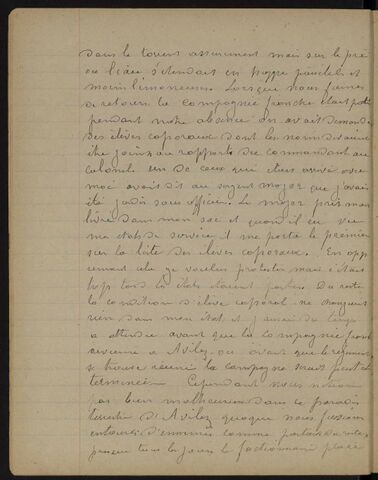 dans le torrent assurément mais sur le pré
ou l'eau s'étendait en nappe paisible et
moins limoneuse. Lorsque nous fumes
de retour la compagnie franche était
pendant notre absence on avait demandé
des élèves caporaux dont les noms devaient
être joints au rapport du commandant au
colonel un de ceux qui étais arrivé avec
moi avait dit au sergent major que j'avais
été jadis sous officier le major prit mon
livret dans mon sac et quand il eu vu
mes états de service il me porta le premier
sur la liste des élèves caporaux. En
cela je voulus protester mais c'était
trop tard les états étaient partis. Du reste
la condition d'élève caporal ne changeait
rien dans mon état et j'avais du temps
a attendre avant que la compagnie franche
revienne a Avilez ou avant que le régiment
se trouve réuni la campagne serait peut être
terminée. Cependant nous n'étions
pas bien malheureux dans ce paradis
terrestre d'Avilez quoique nous fussions
entourés d'ennemis comme
presque tous les jours le factionnaire placé